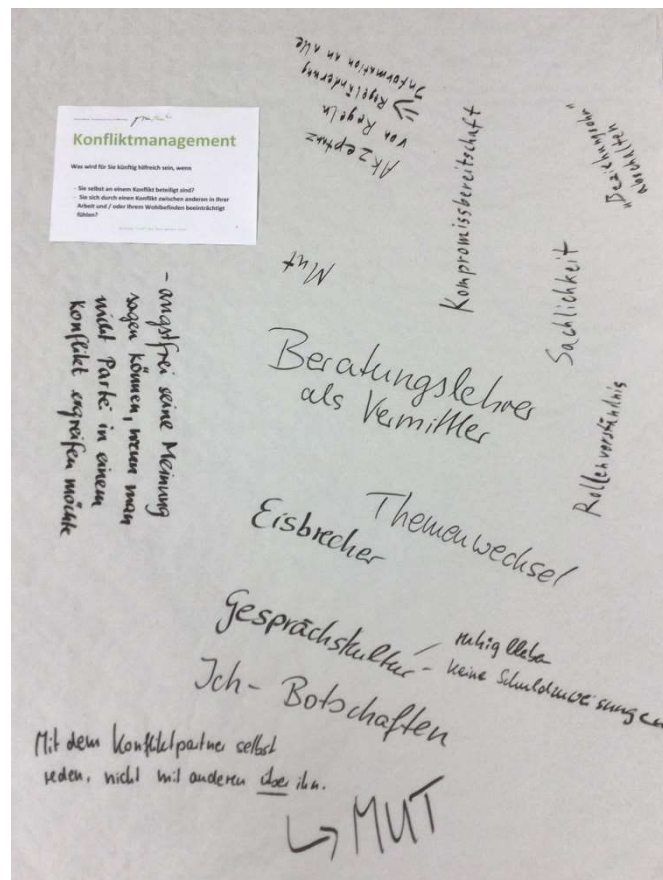 Konfliktmanagement
Was wird für Sie künftig hilfreich sein, wenn
- Sie selbst an einem Konflikt beteiligt sind?
- Sie sich durch einen Konflikt zwischen anderen in Ihrer
Arbeit und / oder Ihrem Wohlbefinden beeinträchtigt
fühlen?
Akzeptanz
von Regeln
Regeländerung
Information an alle
Kompromissbereitschaft
"Beziehungsohr"
abschalten
Mut
Sachlichkeit
- angstfrei seine Meinung
sagen können, wenn man
nicht Partei in einem
Konflikt ergreifen möchte
Beratungslehrer
als Vermittler
Rollenverständnis
Themenwechsel
Eisbrecher
Gesprächskultur
- ruhig bleiben
- keine Schuldzuweisungen
Ich-Botschaften
Mit dem Konfliktpartner selbst
reden, nicht mit anderen über ihn.
↳ MUT